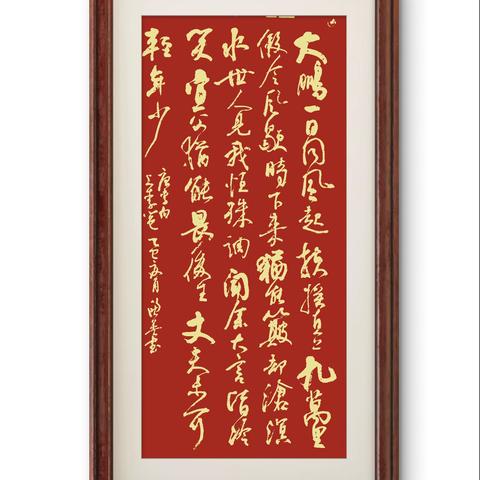 大鹏一日同风起扶摇直上九萬里
假令风歇時下来猶能簸却滄溟
水世人見我恒殊调闻余大言皆冷
笑宣父猶能畏後生丈夫未可
輕年少
唐李白
上李邕 乙巳夏月 書